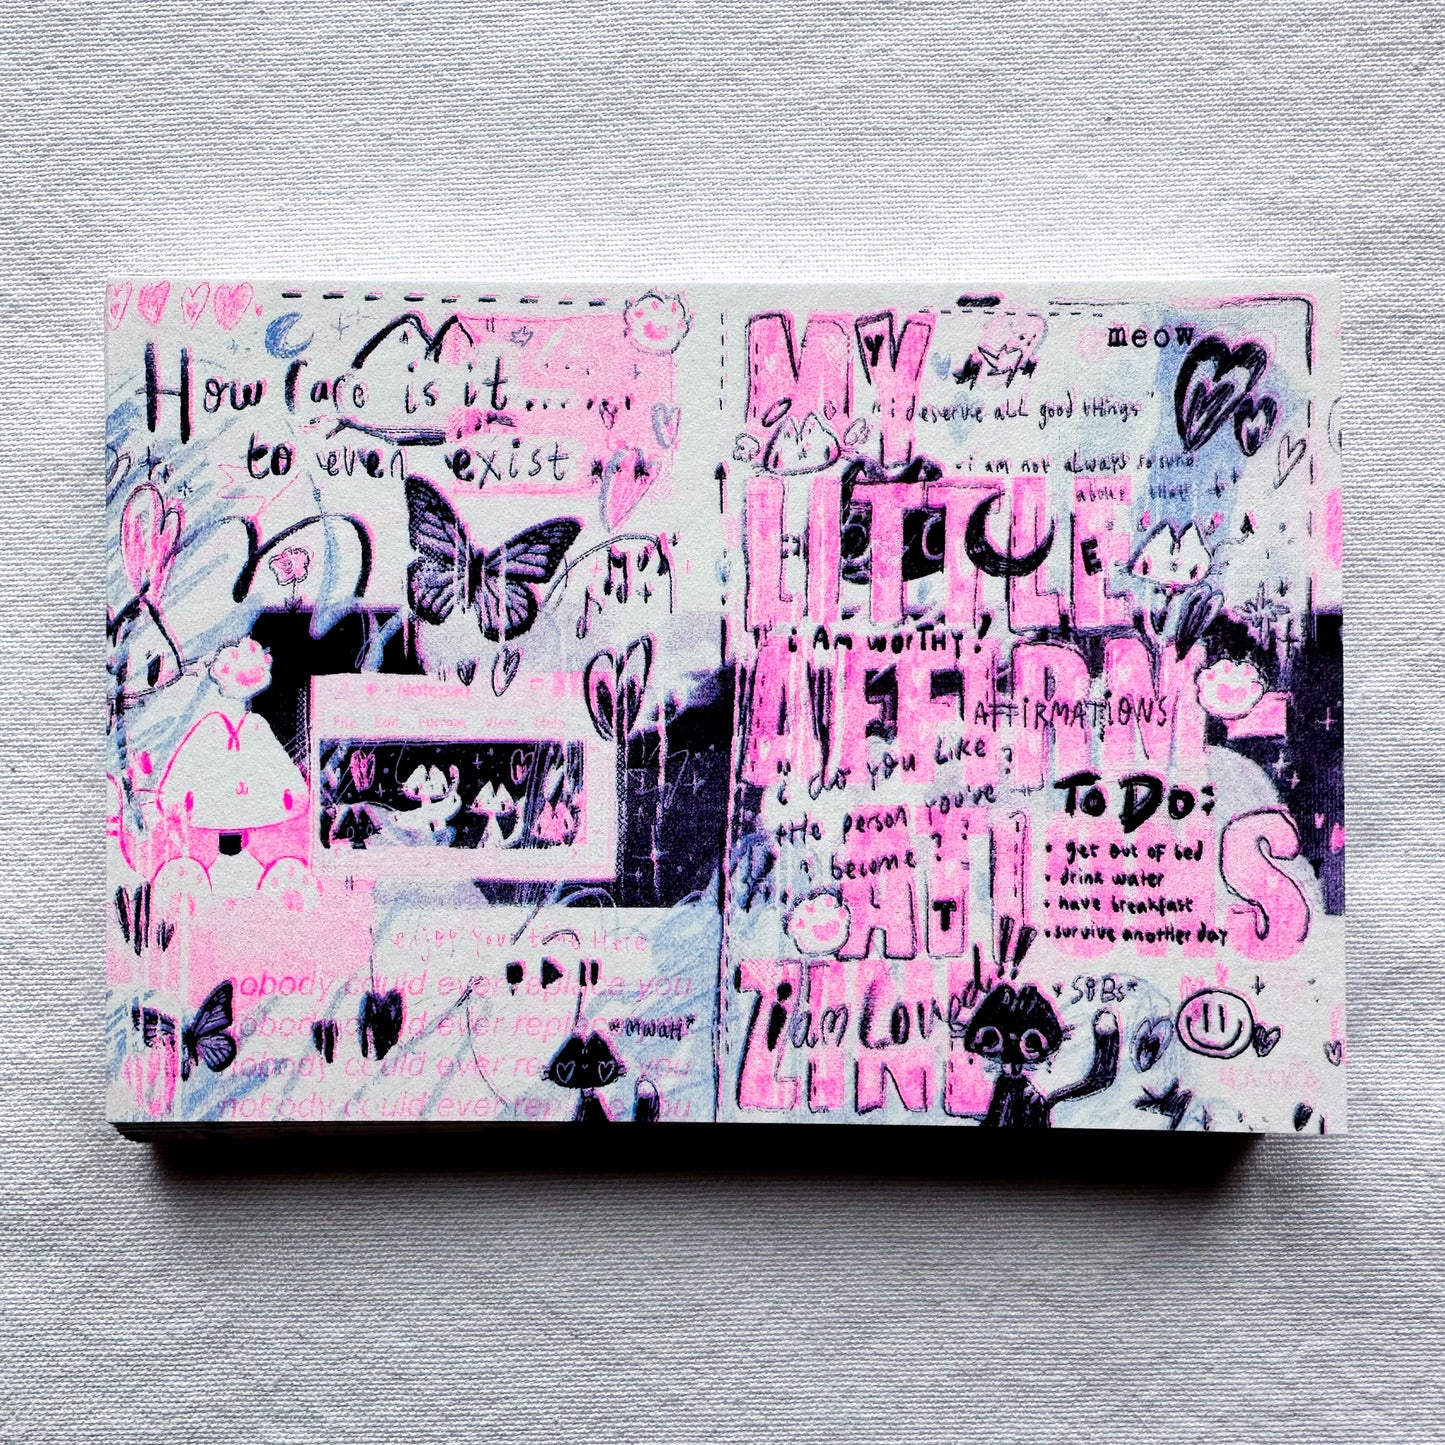 How rare is it.......
to even exist
Notepad
File Edit Format View Help
enjoy your time here
nobody could ever replace you
nobody could ever replace you
nobody could ever replace you
nobody could ever replace you
*mwah*
meow
MY
"i deserve ALL good things"
-i am not always so sure
about that
LITTLE
i AM WORTHY!
AFFIRM-
AFFIRMATIONS
do you like
the person you've
become?
ATIONS
To Do:
• get out of bed
• drink water
• have breakfast
• survive another day
ZINE
i am Loved!!
*SOBS*